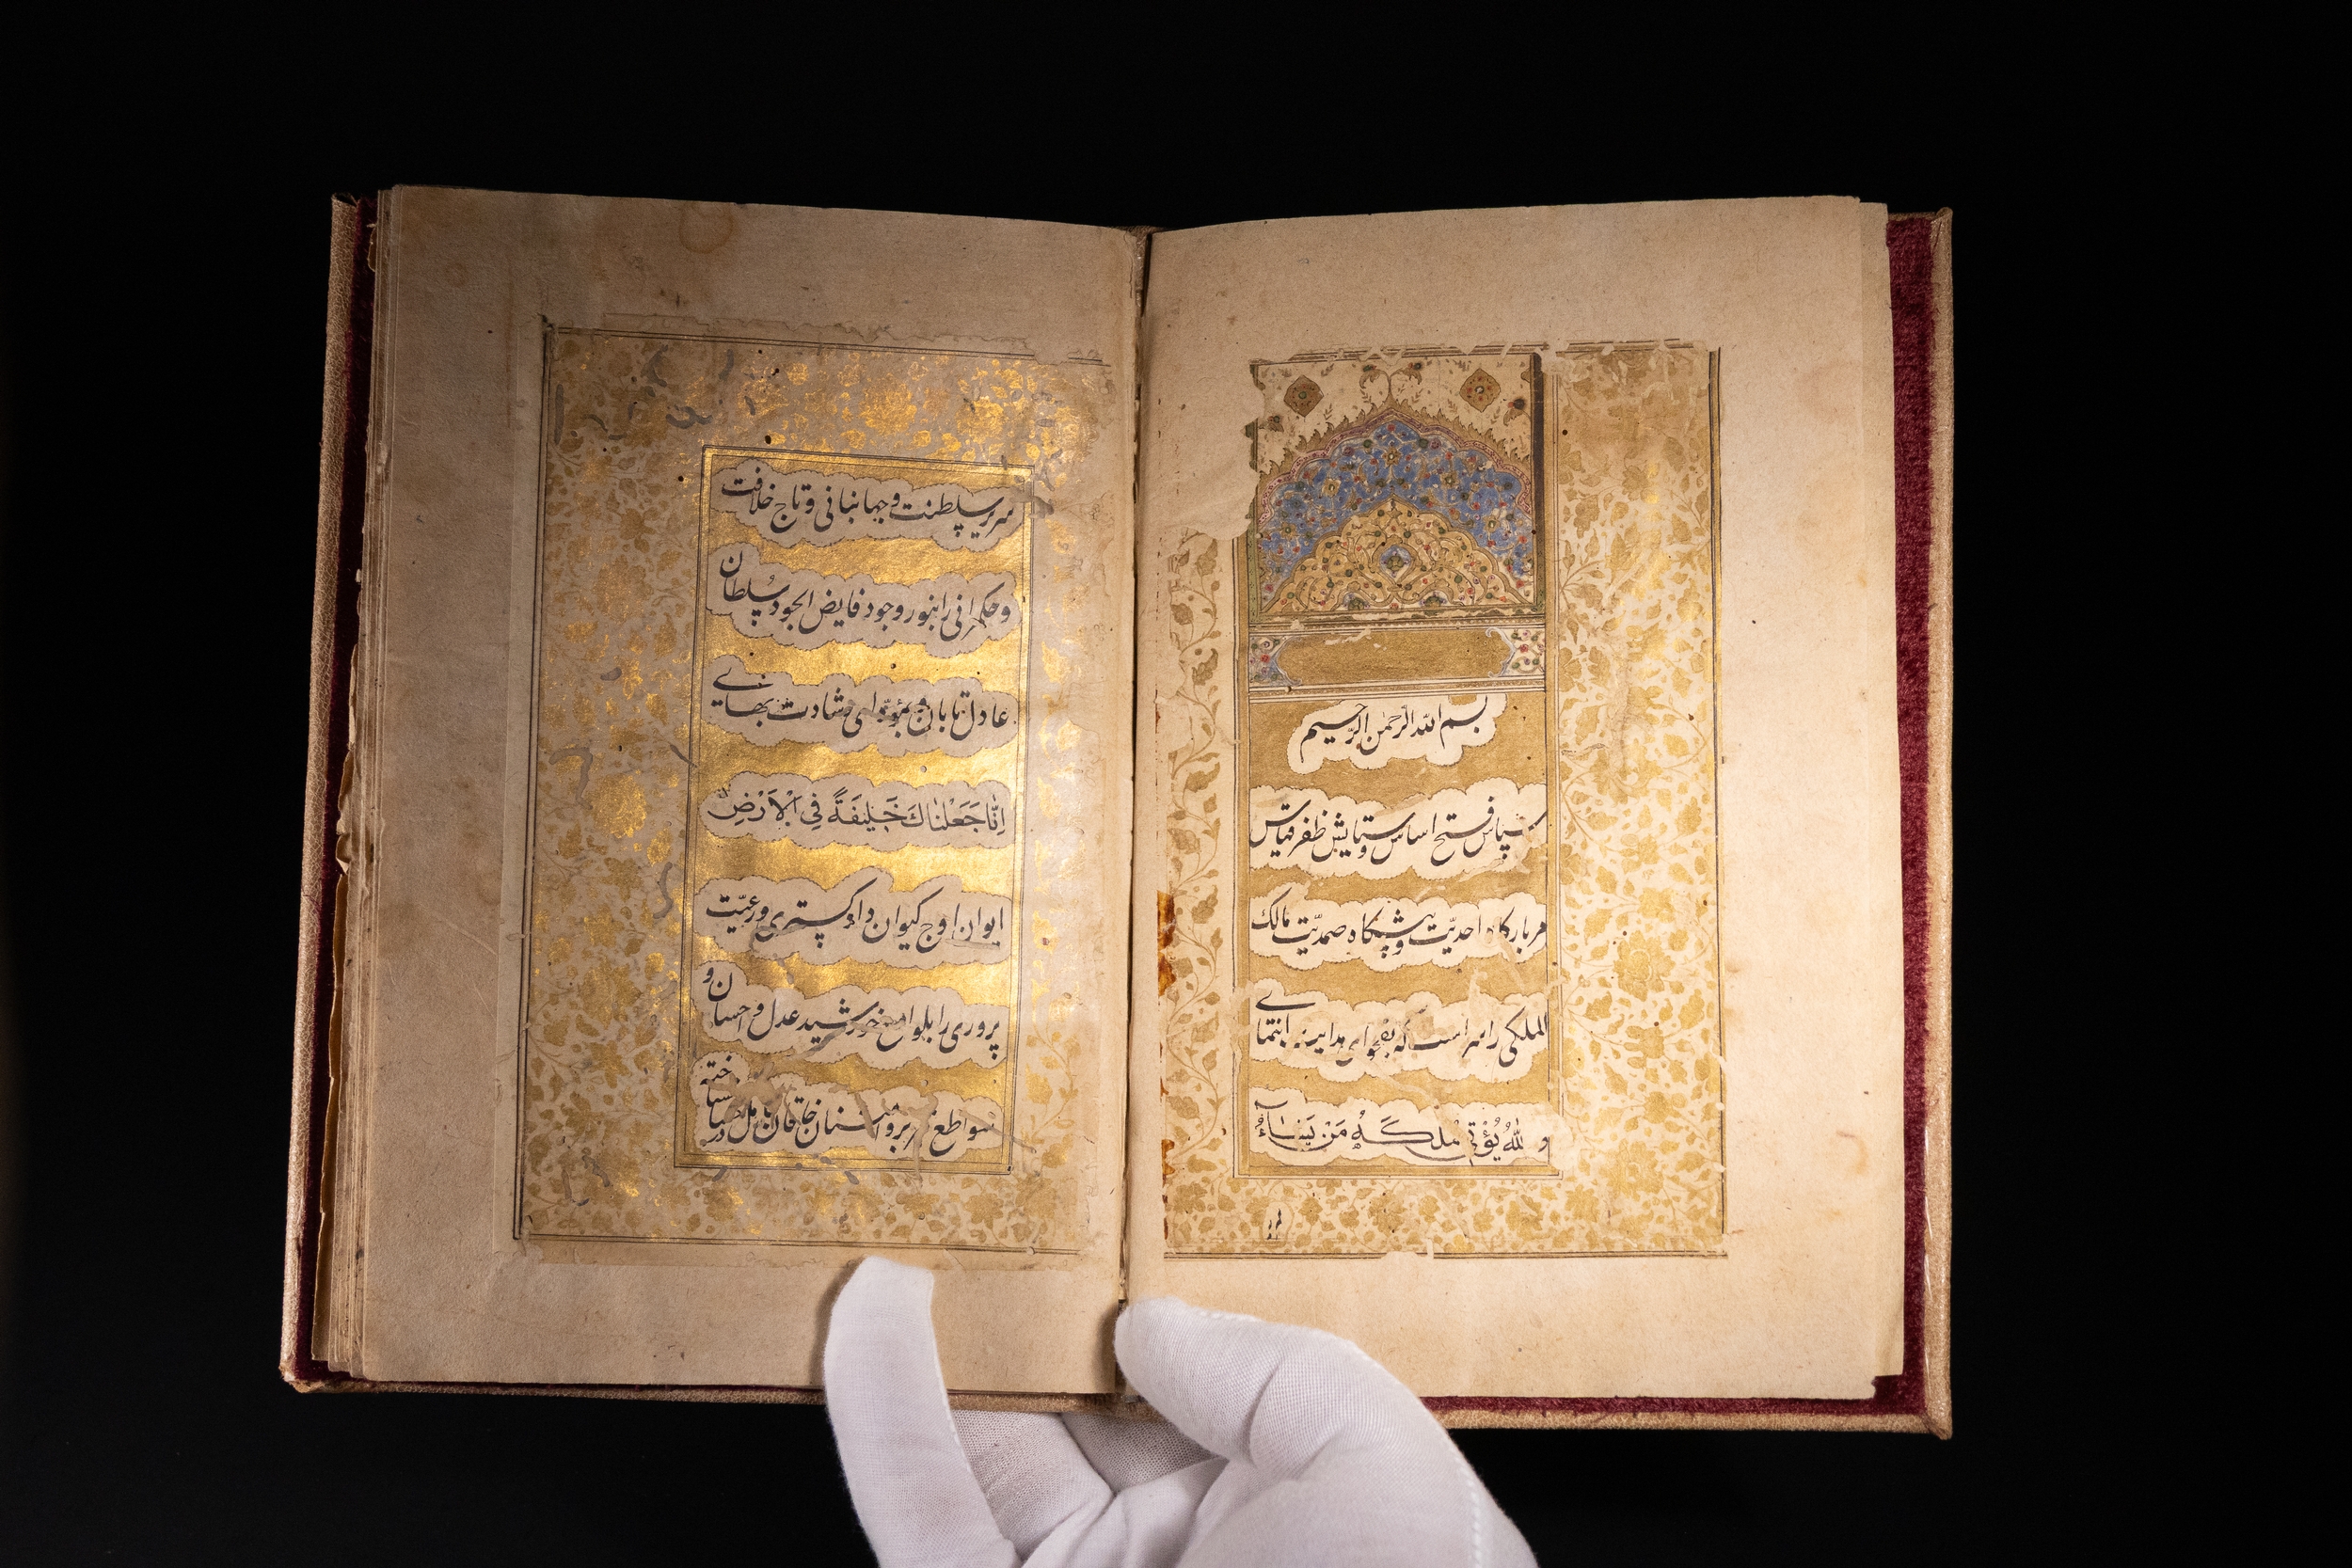 بسم الله الرحمن الرحیم
سپاس فتح اساس و ستایش ظفر قیاس
مر بارگاه احدیت و پیشگاه صمدیت مالک
الملکی را سزاست که بفحوای هدایت انتمای
وَ اللهُ يُؤْتِي مُلْكَهُ مَنْ يَشَاءُ
سریر سلطنت و جهانبانی و تاج خلافت
و حکمرانی را بنور وجود فایض الجود سُلطان
عادل تابان و بمؤدای بشارت بهای
اِنَّا جَعَلْنَاكَ خَلِيفَةً فِي الْاَرْضِ
ایوان اوج کیوان دادگستری و رعیّت
پروری را بلوامع خورشید عدل و احسان و
سواطع بر و امتنان خاقان باذل ساخته